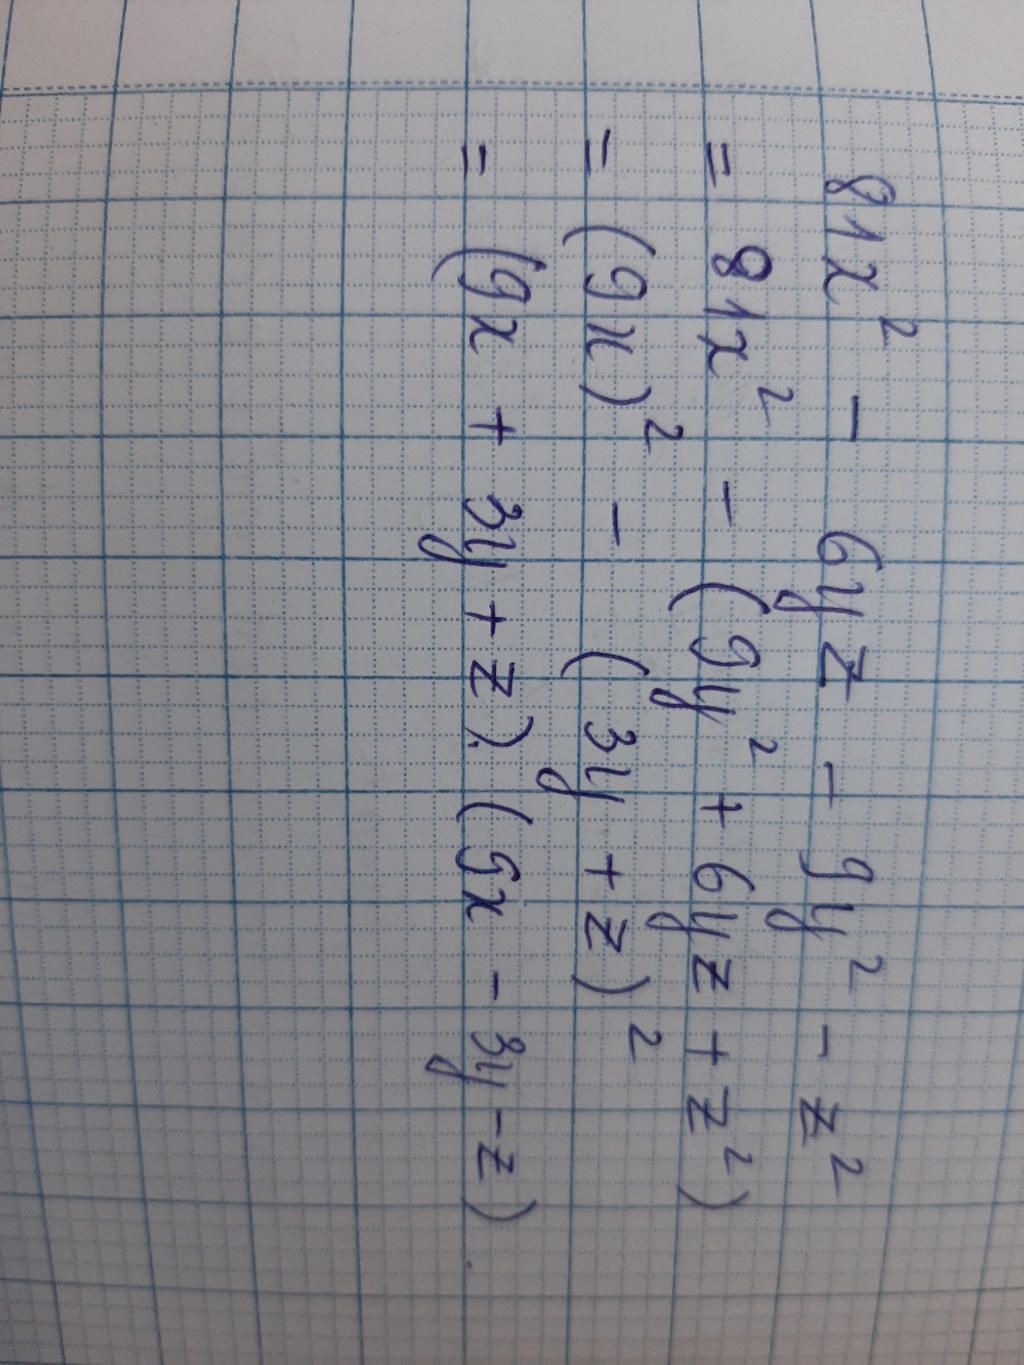 81x² - 6yz - 9y² - z²
= 81x² - (9y² + 6yz + z²)
= (9x)² - (3y + z)²
= (9x + 3y + z). (9x - 3y - z).